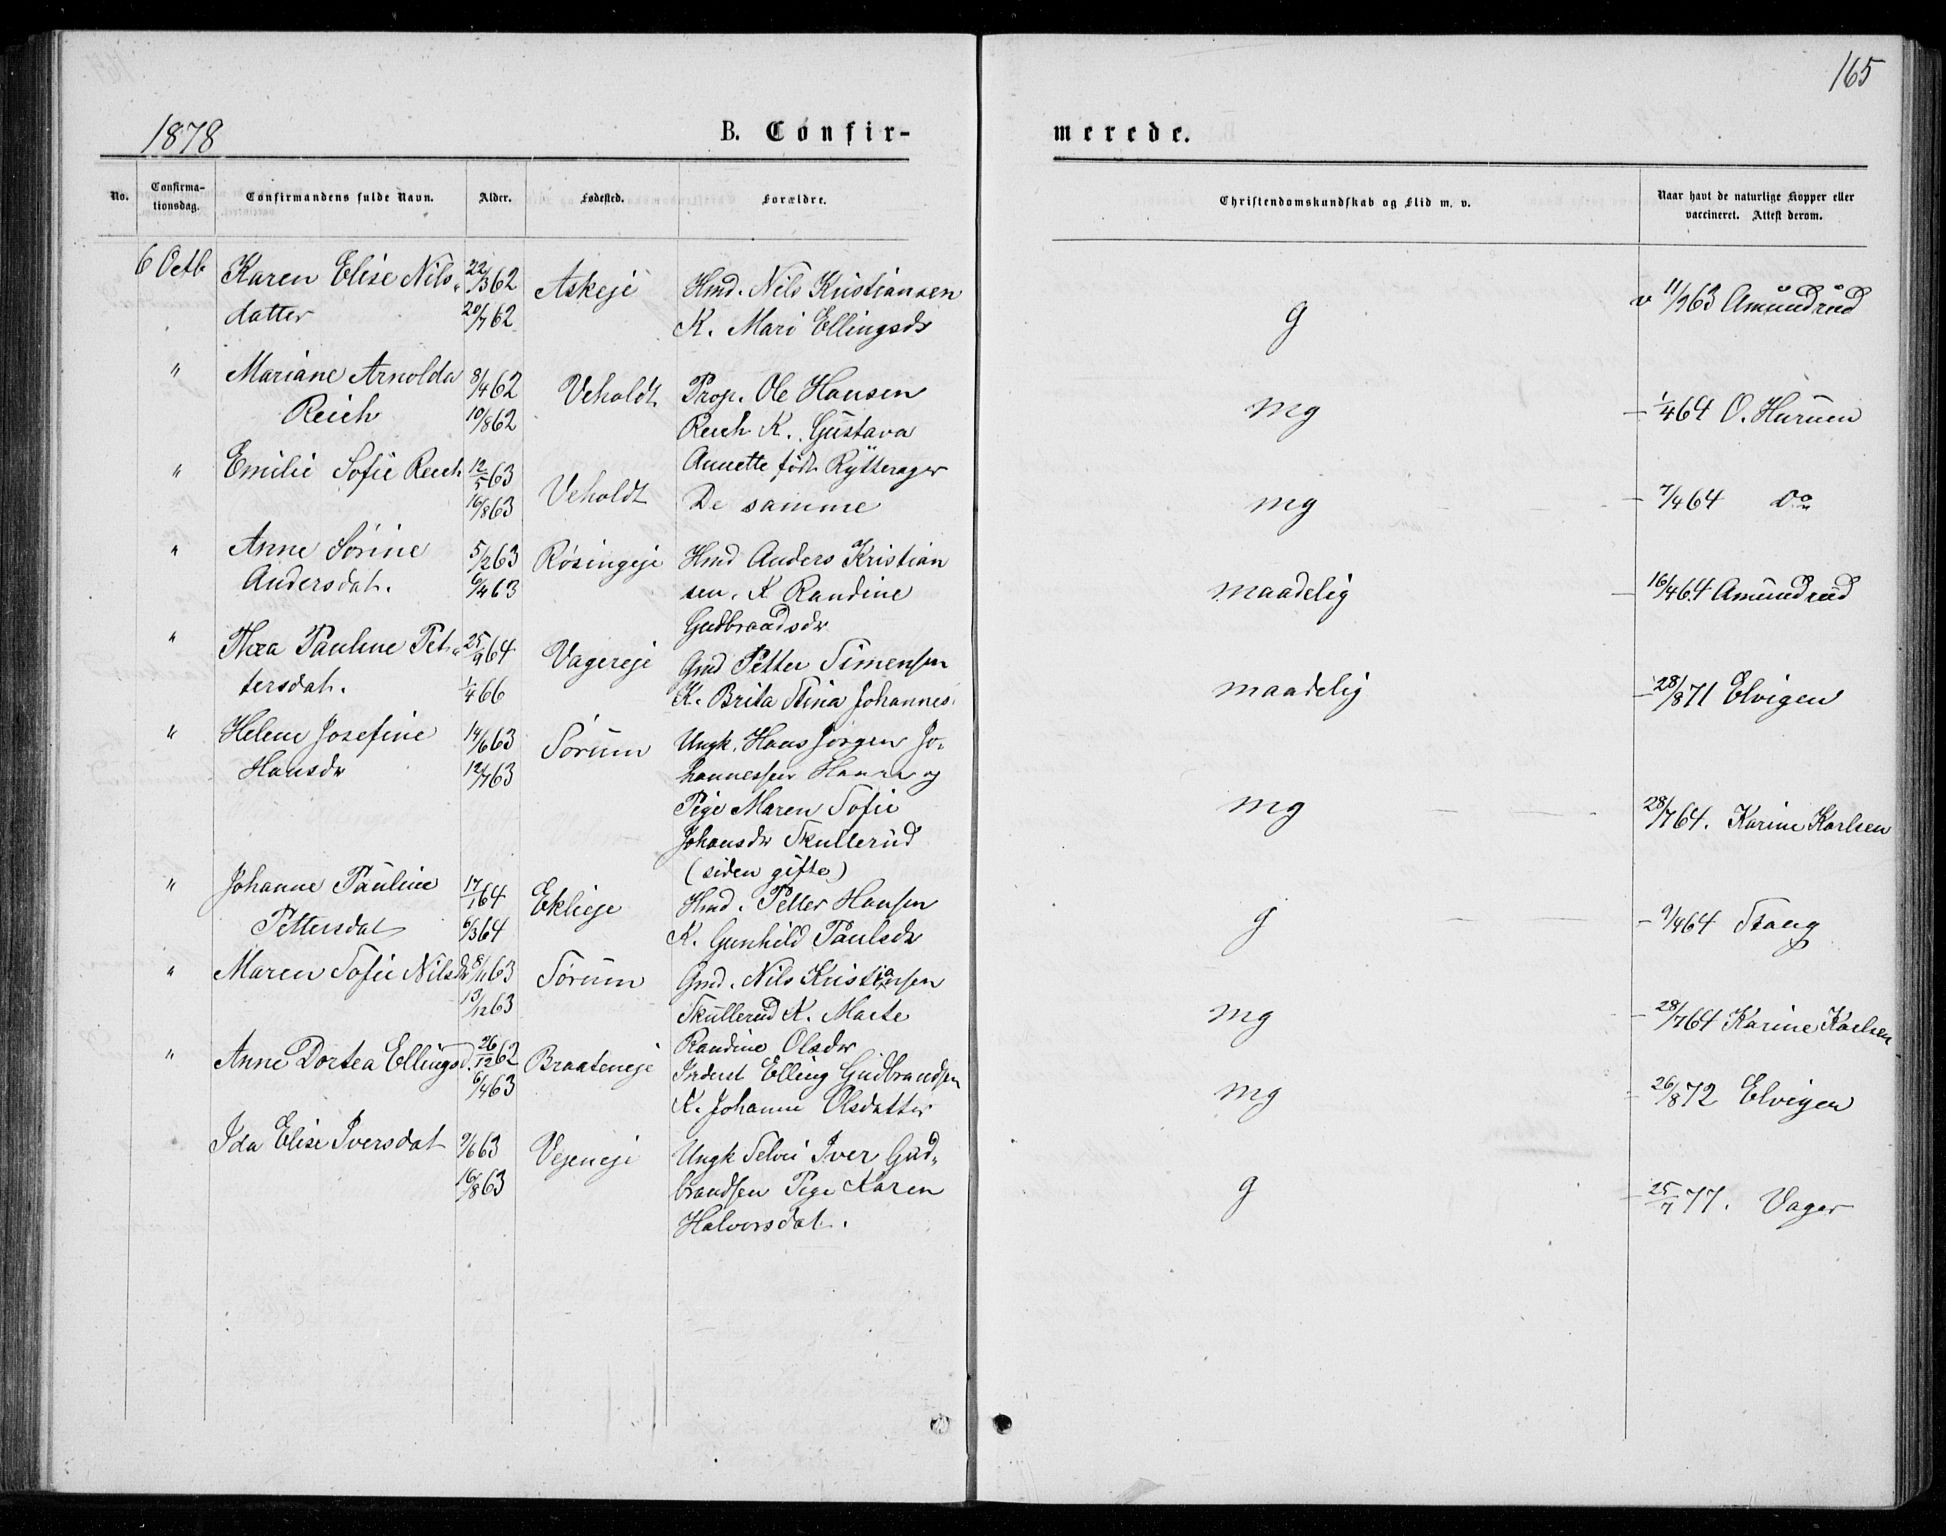 165
1878
B. Confir-
merede.
No.
Confirma-
tionsdag.
Confirmandens fulde Navn.
Alder.
Fødested.
Forældre.
Christendomskundskab og Flid m. v.
Naar havt de naturlige Kopper eller
vaccineret. Attest derom.
6 Octb Karen Elise Nils- 22/3 62 Askeje Hmd. Nils Kristiansen g v 11/9 63 Amundrud
datter 20/7 62 K. Mari Ellingsdr
" Mariane Arnolda 8/4 62 Veholdt Prop. Ole Hansen mg — 1/4 64 O. Huruen
Reich 10/8 62 Reich K. Gustava
Annette født Rytterager
" Emilie Sofie Reich 12/5 63 Veholdt De samme mg — 7/4 64 Do
16/8 63
" Anne Sørine 5/2 63 Røsingeje Hmd Anders Kristian maadelig — 16/4 64 Amundrud
Andersdat. 6/4 63 sen. K Randine
Gudbrandsdr
" Thea Pauline Pet- 25/9 64 Vagereje Gmd Petter Simensen maadelig — 28/8 71 Elvigen
tersdat. 1/4 66 K. Brita Stina Johannes.
" Helene Josefine 14/6 63 Sørum Ungk. Hans Jørgen Jo- mg 28/7 64. Karine Karlsen
Hansdr 12/7 63 hannessen og
Pige Maren Sofie
Johansdr Skullerud
(siden gifte)
" Johanne Pauline 17/1 64 Eklieje Hmd. Petter Hansen g — 9/4 64 Stang
Pettersdat 6/3 64 K. Gunhild Paulsdr
" Maren Sofie Nilsdr 8/11 63 Sørum Gmd. Nils Kristiansen mg — 28/7 64 Karine Karlsen
13/12 63 Skullerud K. Marte
Randine Olsdr
" Anne Dortea Ellingsd. 26/12 62 Braateneje Inderst Elling Gudbrandsen mg — 26/8 72 Elvigen
6/4 63 K. Johanne Olsdatter
Ida Elise Iversdat 9/6 63 Vejeneje Ungk Selvei Iver Gud- g — 25/7 77. Vager
16/8 63 brandsen Pige Karen
Halvorsdat.